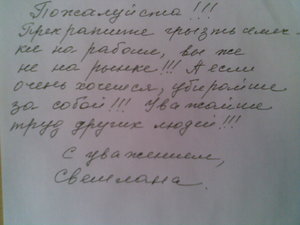 Пожалуйста!!!
Прекратите грызть семеч-
ки на работе, вы же
не на рынке!!! А если
очень хочется, убирайте
за собой!!! Уважайте
труд других людей!!!
С уважением,
Светлана.